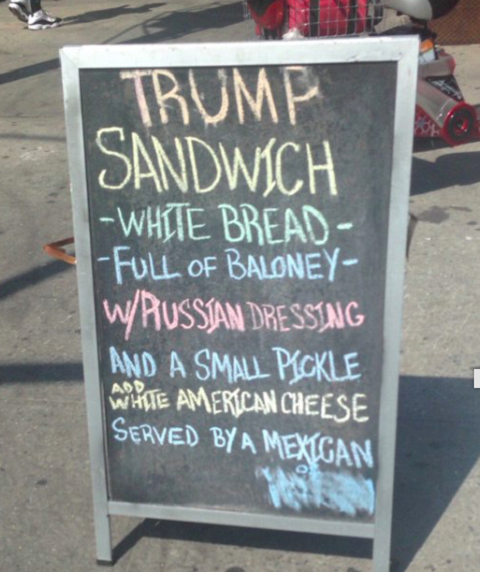 TRUMP
SANDWICH
-WHITE BREAD-
-FULL OF BALONEY-
W/RUSSIAN DRESSING
AND A SMALL PICKLE
ADD
WHITE AMERICAN CHEESE
SERVED BY A MEXICAN